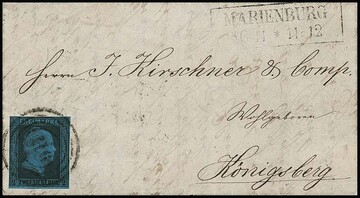 MARIENBURG
11-12
Herrn J. Kirschner & Comp.
Wohlgeboren
Königsberg.